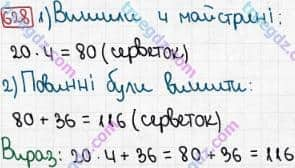 628 1) Вишили 4 майстрині:
20 · 4 = 80 (серветок)
2) Повинні були вишити:
80 + 36 = 116 (серветок)
Вираз: 20 · 4 + 36 = 80 + 36 = 116